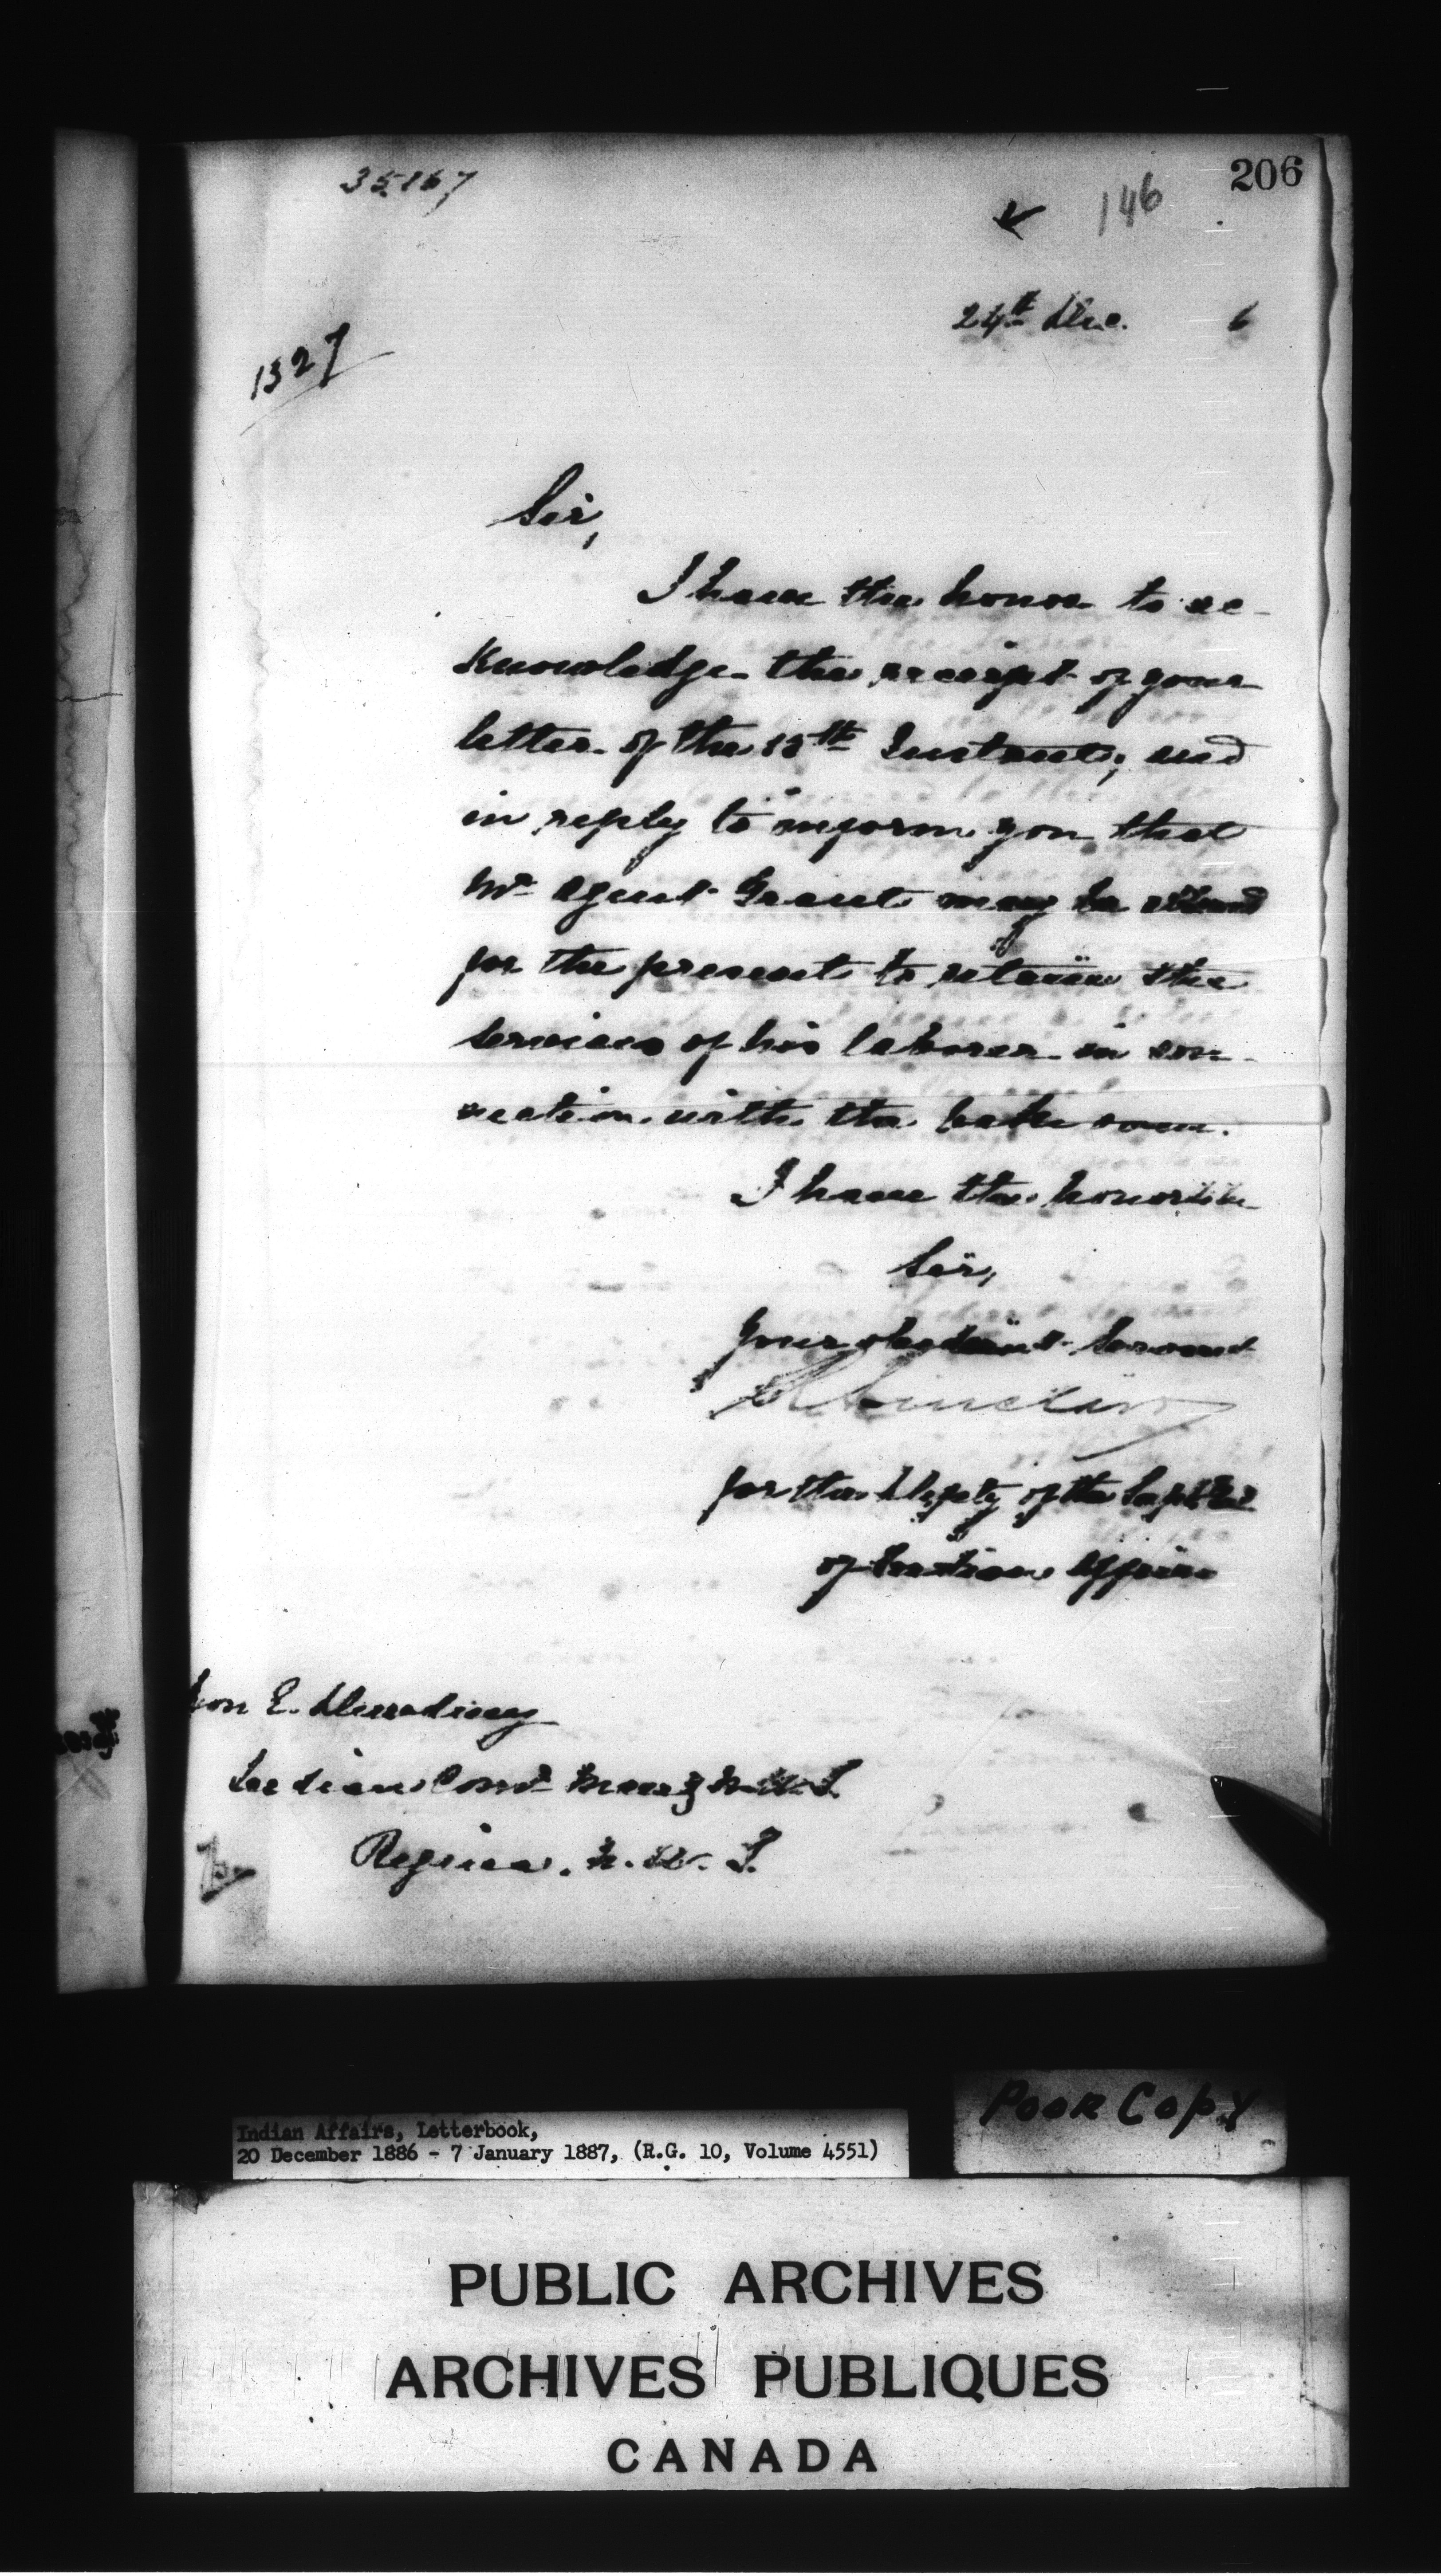 206
35167
146
24th Dec. 6
1327
Sir,
I have the honor to ac-
knowledge the receipt of your
letter of the 18th Instant, and
in reply to inform you that
Mr Agent Grant may be allowed
for the present to retain the
services of his laborer in con-
nection with the
I have the honor to be
Sir,
Your obedient Servant
R Sinclair
for the Deputy of the Supt Genl
of Indian Affairs
Hon E. Dewdney
Indian Comr Man & N.W.T.
Regina. N. W. T.
POOR COPY
Indian Affairs, Letterbook,
20 December 1886 - 7 January 1887, (R.G. 10, Volume 4551)
PUBLIC ARCHIVES
ARCHIVES PUBLIQUES
CANADA